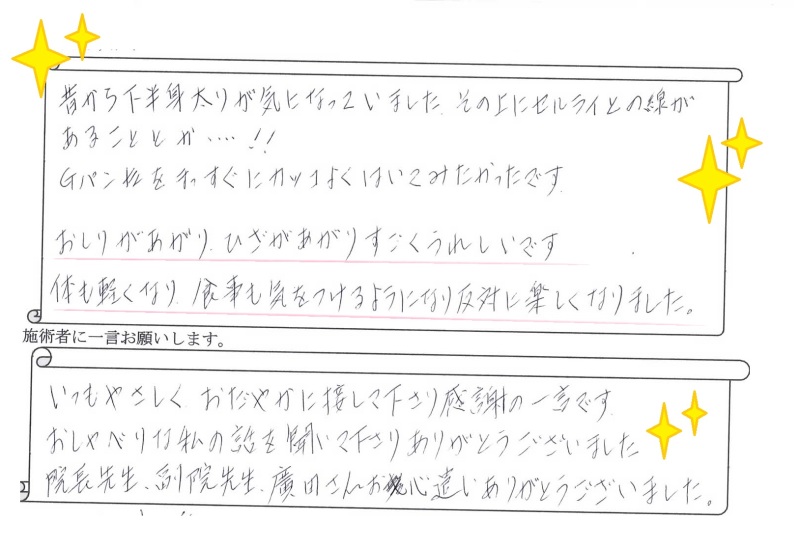 昔から下半身太りが気になっていました。その上にセルライトの線が
あることとか‥‥!!
Gパン姿をまっすぐにカッコよくはいてみたかったです。
おしりがあがり、ひざがあがりすごくうれしいです
体も軽くなり、食事も気をつけるようになり反対に楽しくなりました。
施術者に一言お願いします。
いつもやさしく、おだやかに接して下さり感謝の一言です。
おしゃべりな私の話を聞いて下さりありがとうございました
院長先生、副院先生、廣田さんお心遣いありがとうございました。